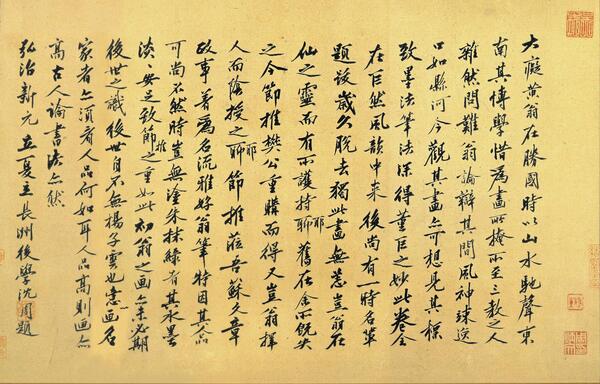 大癡黃翁在勝國時以山水馳聲東
南其博學惜為畫所掩所至三教之人
雜然問難翁論辯其間風神竦逸
口如縣河今觀其畫亦可想見其標
致墨法筆法深得董巨之妙此卷全
在巨然風韻中来後尚有一時名輩
題跋歲久脫去獨此畫無恙豈翁在
仙之靈而有所護持耶舊在余所既失
之今節推樊公重購而得又豈翁擇
人而陰授之耶節推蒞吾蘇文章
政事著為名流雅好翁筆特因其人品
可尚不然時豈無塗朱抹綠者其水墨
淡淡安足致節推之重如此初翁之画亦未必期
後世之識後世自不無楊子雲也噫以画名
家者亦須看人品何如耳人品高則画亦
高古人論書法亦然
弘治新元立夏立長洲後學沈周題